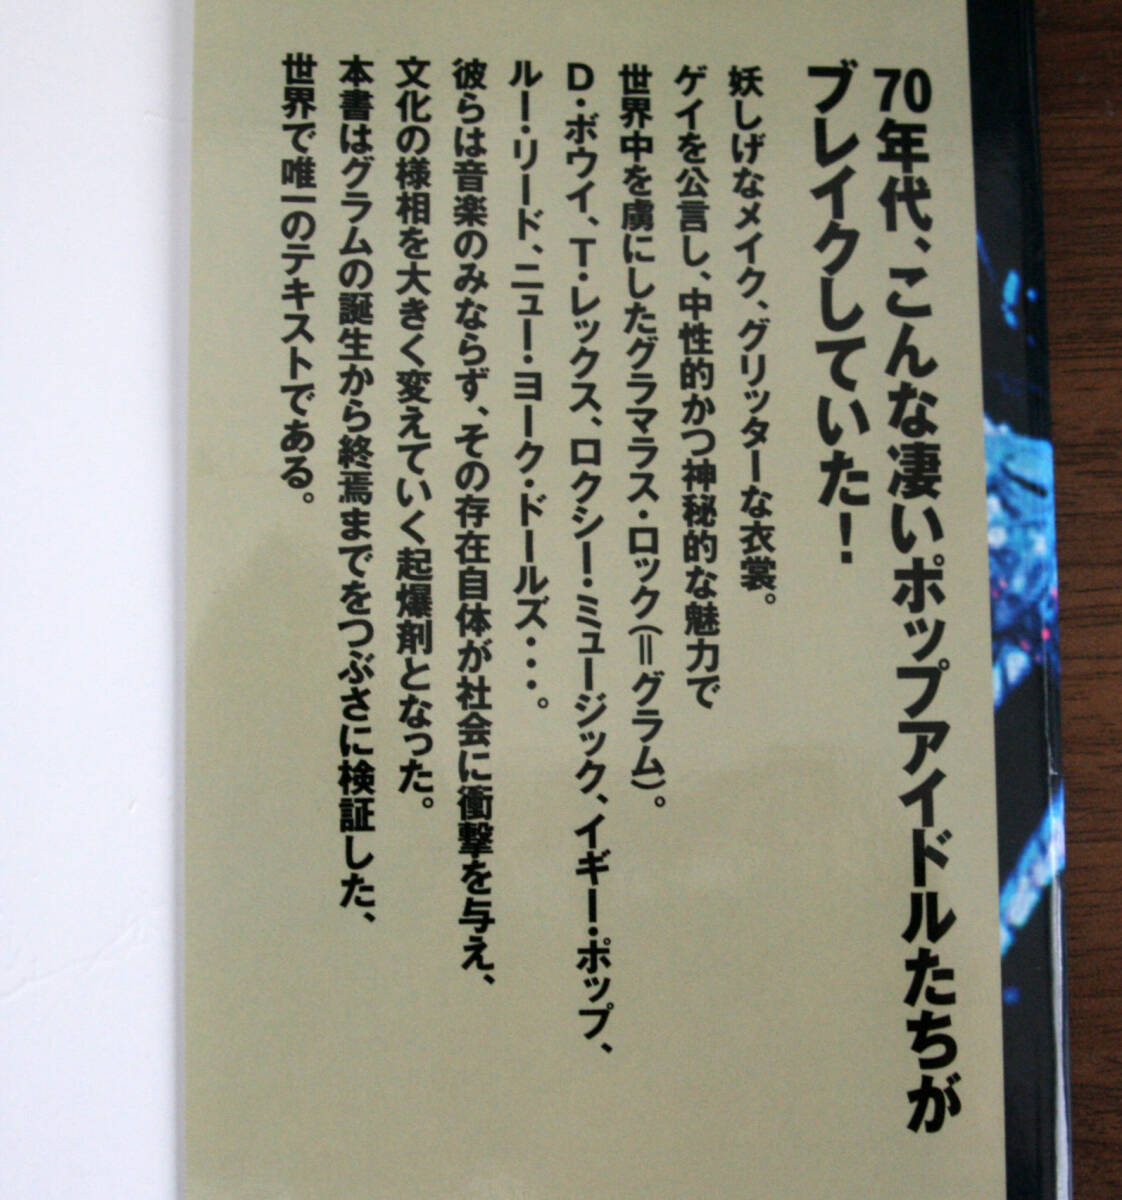 70年代、こんな凄いポップアイドルたちが
ブレイクしていた！
妖しげなメイク、グリッターな衣裳。
ゲイを公言し、中性的かつ神秘的な魅力で
世界中を虜にしたグラマラス・ロック（＝グラム）。
D・ボウイ、T・レックス、ロクシー・ミュージック、イギー・ポップ、
ルー・リード、ニュー・ヨーク・ドールズ・・・。
彼らは音楽のみならず、その存在自体が社会に衝撃を与え、
文化の様相を大きく変えていく起爆剤となった。
本書はグラムの誕生から終焉までをつぶさに検証した、
世界で唯一のテキストである。